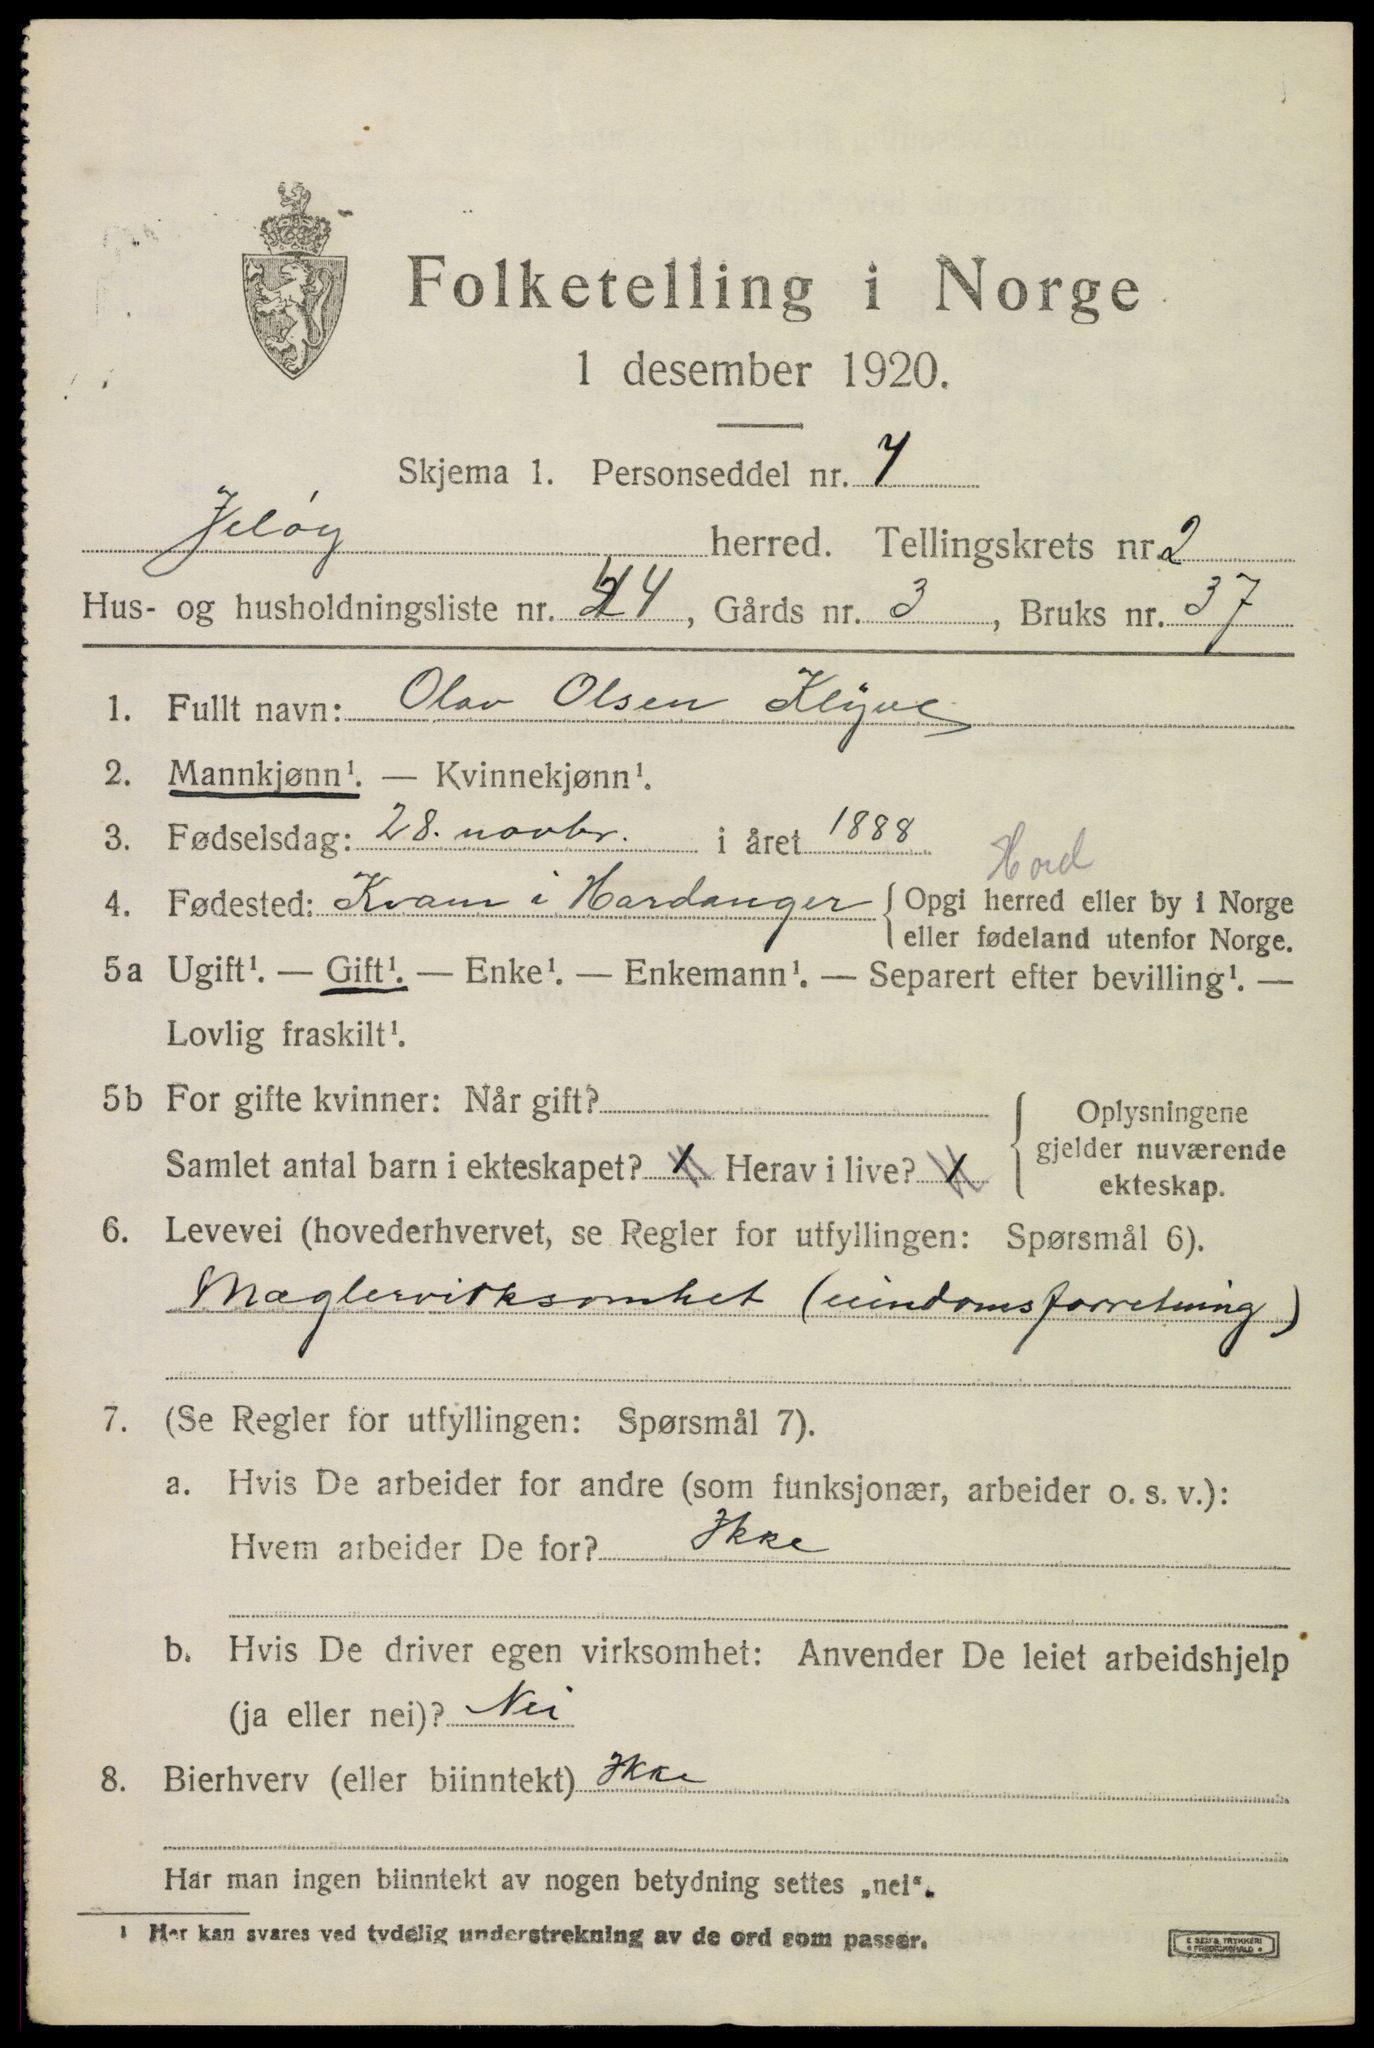 Folketelling i Norge
1 desember 1920.
Skjema 1. Personseddel nr. 7
Jeløy herred. Tellingskrets nr. 2
Hus- og husholdningsliste nr. 44, Gårds nr. 3, Bruks nr. 37
1. Fullt navn: Olav Olsen Klyve
2. Mannkjønn¹. — Kvinnekjønn¹.
3. Fødselsdag: 28. novbr. i året 1888
Hord
4. Fødested: Kvam i Hardanger { Opgi herred eller by i Norge
eller fødeland utenfor Norge.
5a Ugift¹. — Gift¹. — Enke¹. — Enkemann¹. — Separert efter bevilling¹. —
Lovlig fraskilt¹.
5b For gifte kvinner: Når gift? { Oplysningene
gjelder nuværende
ekteskap.
Samlet antal barn i ekteskapet? 1 Herav i live? 1
6. Levevei (hovederhvervet, se Regler for utfyllingen: Spørsmål 6).
Mæglervirksomhet (eiendomsforretning)
7. (Se Regler for utfyllingen: Spørsmål 7).
a. Hvis De arbeider for andre (som funksjonær, arbeider o. s. v.):
Hvem arbeider De for? Ikke
b. Hvis De driver egen virksomhet: Anvender De leiet arbeidshjelp
(ja eller nei)? Nei
8. Bierhverv (eller biinntekt) Ikke
Har man ingen biinntekt av nogen betydning settes „nei“.
¹ Her kan svares ved tydelig understrekning av de ord som passer.